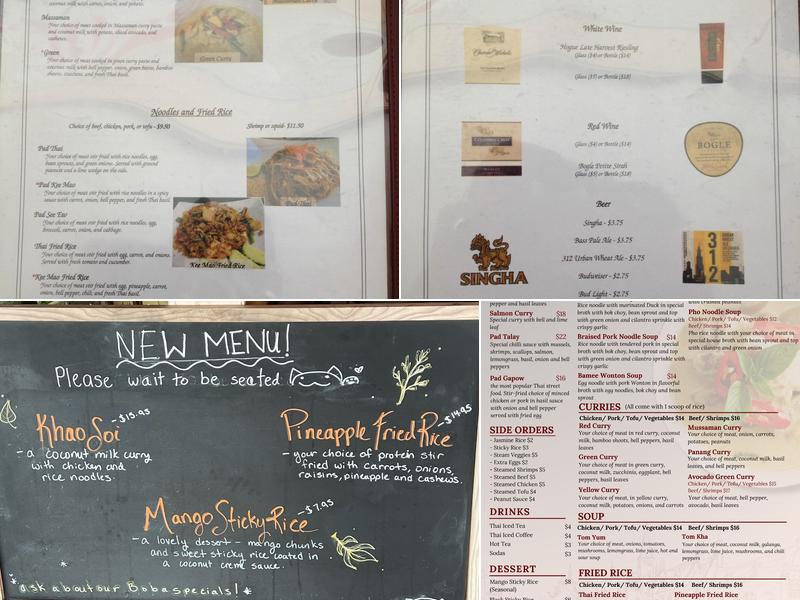 coconut milk with carrots, onion, and potatoes.
Massaman
Your choice of meat cooked in Massaman curry paste
and coconut milk with potato, sliced avocado, and
cashews.
*Green
Your choice of meat cooked in green curry paste and
coconut milk with bell pepper, onion, green beans, bamboo
shoots, zucchini, and fresh Thai basil.
Green Curry
Noodles and Fried Rice
Choice of beef, chicken, pork, or tofu - $9.50
Shrimp or squid- $11.50
Pad Thai
Your choice of meat stir fried with rice noodles, egg,
bean sprouts, and green onions. Served with ground
peanuts and a lime wedge on the side.
*Pad Kee Mao
Your choice of meat stir fried with rice noodles in a spicy
sauce with carrot, onion, bell pepper, and fresh Thai basil.
Pad See Ew
Your choice of meat stir fried with rice noodles, egg,
broccoli, carrot, onion, and cabbage.
Thai Fried Rice
Your choice of meat stir fried with egg, carrot, and onions.
Served with fresh tomato and cucumber.
*Kee Mao Fried Rice
Your choice of meat stir fried with egg, pineapple, carrot,
onion, bell pepper, chili, and fresh Thai basil.
Kee Mao Fried Rice
White Wine
Hogue Late Harvest Riesling
Glass ($4) or Bottle ($14)
Glass ($5) or Bottle ($18)
Red Wine
Glass ($4) or Bottle ($14)
Bogle Petite Sirah
Glass ($5) or Bottle ($18)
BOGLE
Beer
Singha - $3.75
Bass Pale Ale - $3.75
312 Urban Wheat Ale - $3.75
Budweiser - $2.75
Bud Light - $2.75
SINGHA
312
NEW MENU!
Please wait to be seated
Khao Soi - $15.95
- a coconut milk curry
with chicken and
rice noodles.
Pineapple Fried Rice - $14.95
- your choice of protein stir
fried with carrots, onions,
raisins, pineapple and cashews.
Mango Sticky Rice - $7.95
- a lovely dessert - mango chunks
and sweet sticky rice coated in
a coconut creme sauce.
*ask about our Boba specials!*
pepper and basil leaves
Salmon Curry $18
Special curry with bell and lime
leaf
Pad Talay $22
Special chili sauce with mussels,
shrimps, scallops, salmon,
lemongrass, basil, onion and bell
peppers
Pad Gapow $16
the most popular Thai street
food. Stir-fried choice of minced
chicken or pork in basil sauce
with onion and bell pepper
served with fried egg
SIDE ORDERS
- Jasmine Rice $2
- Sticky Rice $3
- Steam Veggies $5
- Extra Eggs $2
- Steamed Shrimps $5
- Steamed Beef $5
- Steamed Chicken $5
- Steamed Tofu $4
- Peanut Sauce $4
DRINKS
Thai Iced Tea $4
Thai Iced Coffee $4
Hot Tea $3
Sodas $3
DESSERT
Mango Sticky Rice $8
(Seasonal)
Rice noodle with marinated Duck in special
broth with bok choy, bean sprout and top
with green onion and cilantro sprinkle with
crispy garlic
Braised Pork Noodle Soup $14
Rice noodle with tendered pork in special
broth with bok choy, bean sprout and top
with green onion and cilantro sprinkle with
crispy garlic
Bamee Wonton Soup $14
Egg noodle with pork Wonton in flavorful
broth with egg noodles, bok choy and bean
sprout
with crushed peanuts.
Pho Noodle Soup
Chicken/ Pork/ Tofu/ Vegetables $12
Beef/ Shrimps $14
Pho rice noodle with your choice of meat in
special house broth with bean sprout and top
with cilantro and green onion
CURRIES (All come with 1 scoop of rice)
Chicken/ Pork/ Tofu/ Vegetables $14 Beef/ Shrimps $16
Red Curry
Your choice of meat in red curry, coconut
milk, bamboo shoots, bell peppers, basil
leaves
Green Curry
Your choice of meat in green curry,
coconut milk, zucchinis, eggplant, bell
peppers, basil leaves
Yellow Curry
Your choice of meat, in yellow curry,
coconut milk, potatoes, onions, and carrots
Mussaman Curry
Your choice of meat, onion, carrots,
potatoes, peanuts
Panang Curry
Your choice of meat, coconut milk, basil
leaves, and bell peppers
Avocado Green Curry
Chicken/ Pork/ Tofu/ Vegetables $15
Beef/ Shrimps $17
Your choice of meat, bell pepper,
avocado, basil leaves
SOUP
Chicken/ Pork/ Tofu/ Vegetables $14 Beef/ Shrimps $16
Tom Yum
Your choice of meat, onions, tomatoes,
mushrooms, lemongrass, lime juice, hot and
sour soup
Tom Kha
Your choice of meat, coconut milk, galanga,
lemongrass, lime juice, mushrooms, and chili
peppers
FRIED RICE
Chicken/ Pork/ Tofu/ Vegetables $14 Beef/ Shrimps $16
Thai Fried Rice
Pineapple Fried Rice